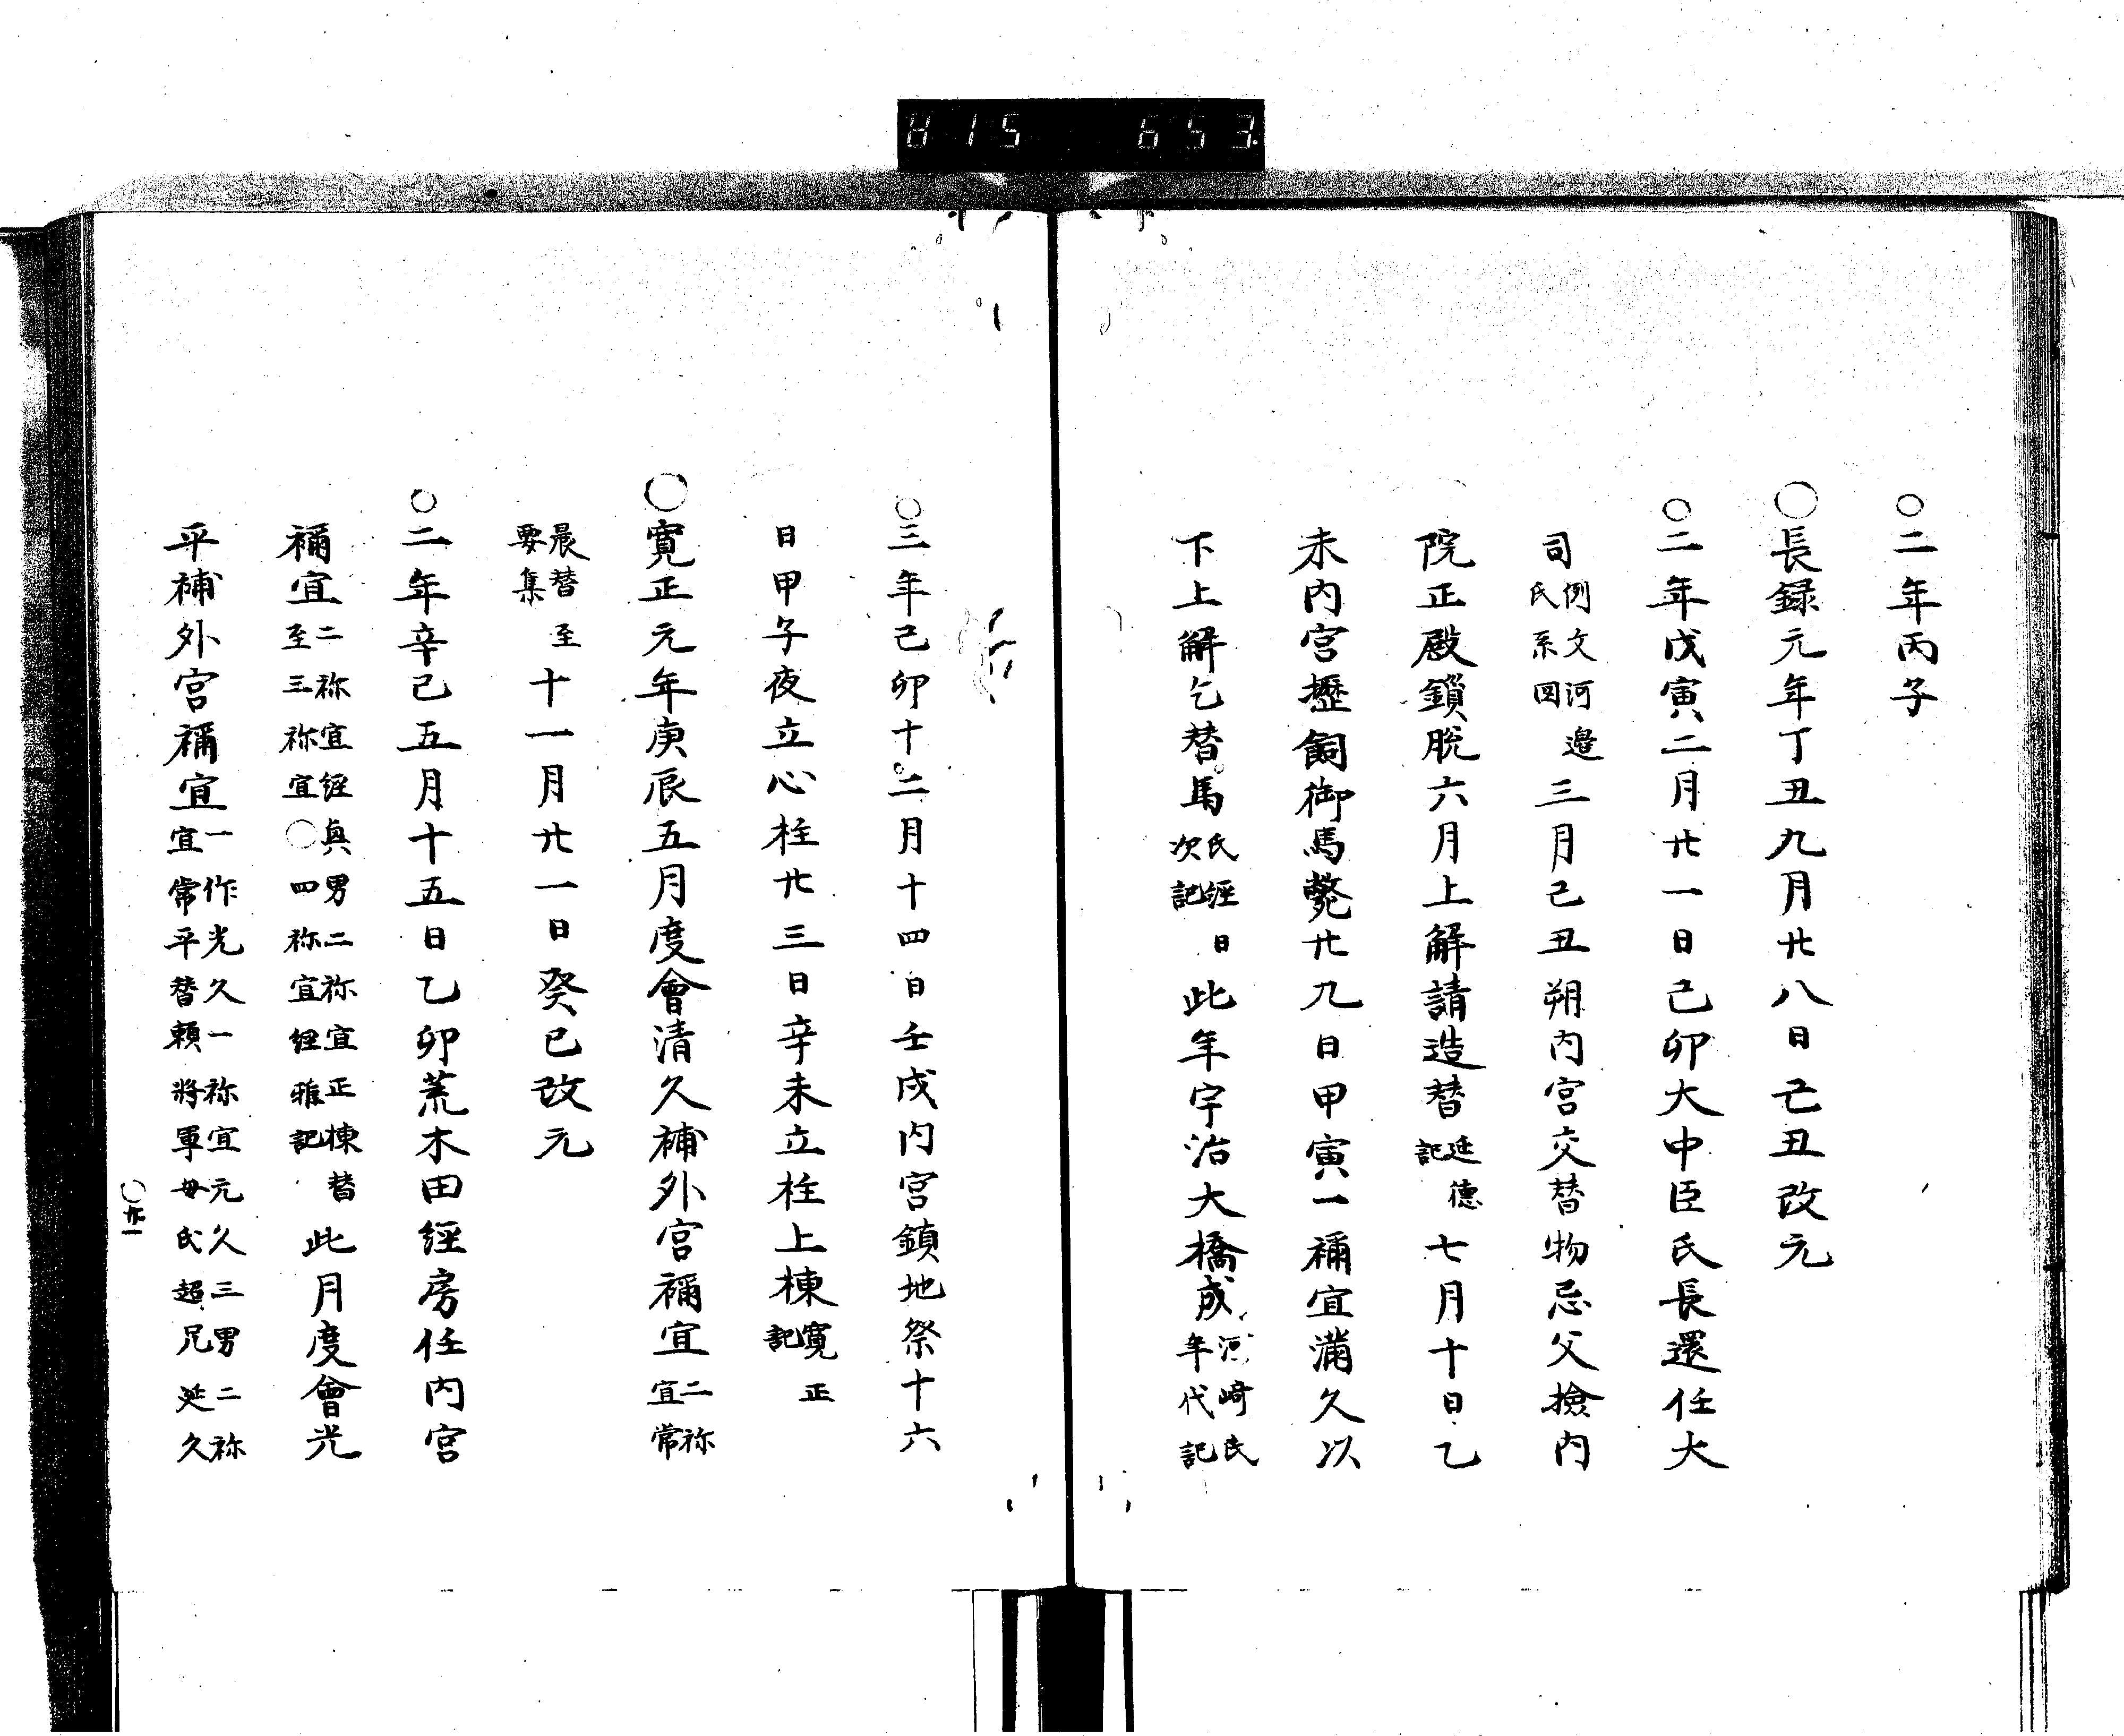 H15 653
○二年丙子
○長録元年丁丑九月廿八日己丑改元
○二年戊寅二月廿一日己卯大中臣氏長還任大
司例文河邉氏系図三月己丑朔内宮交替物忌父撿内
院正殿鎖脱六月上解請造替延徳記七月十日乙
未内宮櫪飼御馬斃廿九日甲寅一禰宜満久以
下上解乞替馬氏経日次記此年宇治大橋成河崎氏年代記
○三年己卯十二月十四日壬戌内宮鎮地祭十六
日甲子夜立心柱廿三日辛未立柱上棟寛正記
○寛正元年庚辰五月度會清久補外宮禰宜二祢宜常
晨替至要集至十一月廿一日癸巳改元
○二年辛己五月十五日乙卯荒木田經房任内宮
禰宜二祢宜經眞男二祢宜正棟替至三祢宜○四祢宜經雅記此月度會光
平補外宮禰宜一作光久一祢宜元久三男二祢宜常平替頼將軍母氏超兄延久
○廿一